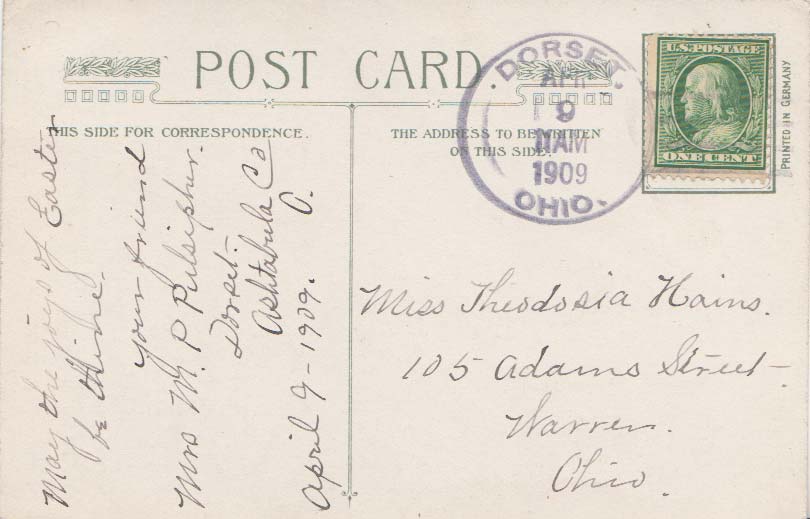 POST CARD.
THIS SIDE FOR CORRESPONDENCE.
THE ADDRESS TO BE WRITTEN
ON THIS SIDE.
DORSET,
APR
9
11AM
1909
OHIO.
U.S. POSTAGE
ONE CENT
PRINTED IN GERMANY
May the joys of Easter
be thine.
your friend
Mrs M. P Pulsipher.
Dorset.
Ashtabula Co
O.
April 9 - 1909.
Miss Theodosia Hains.
105 Adams Street -
Warren.
Ohio.